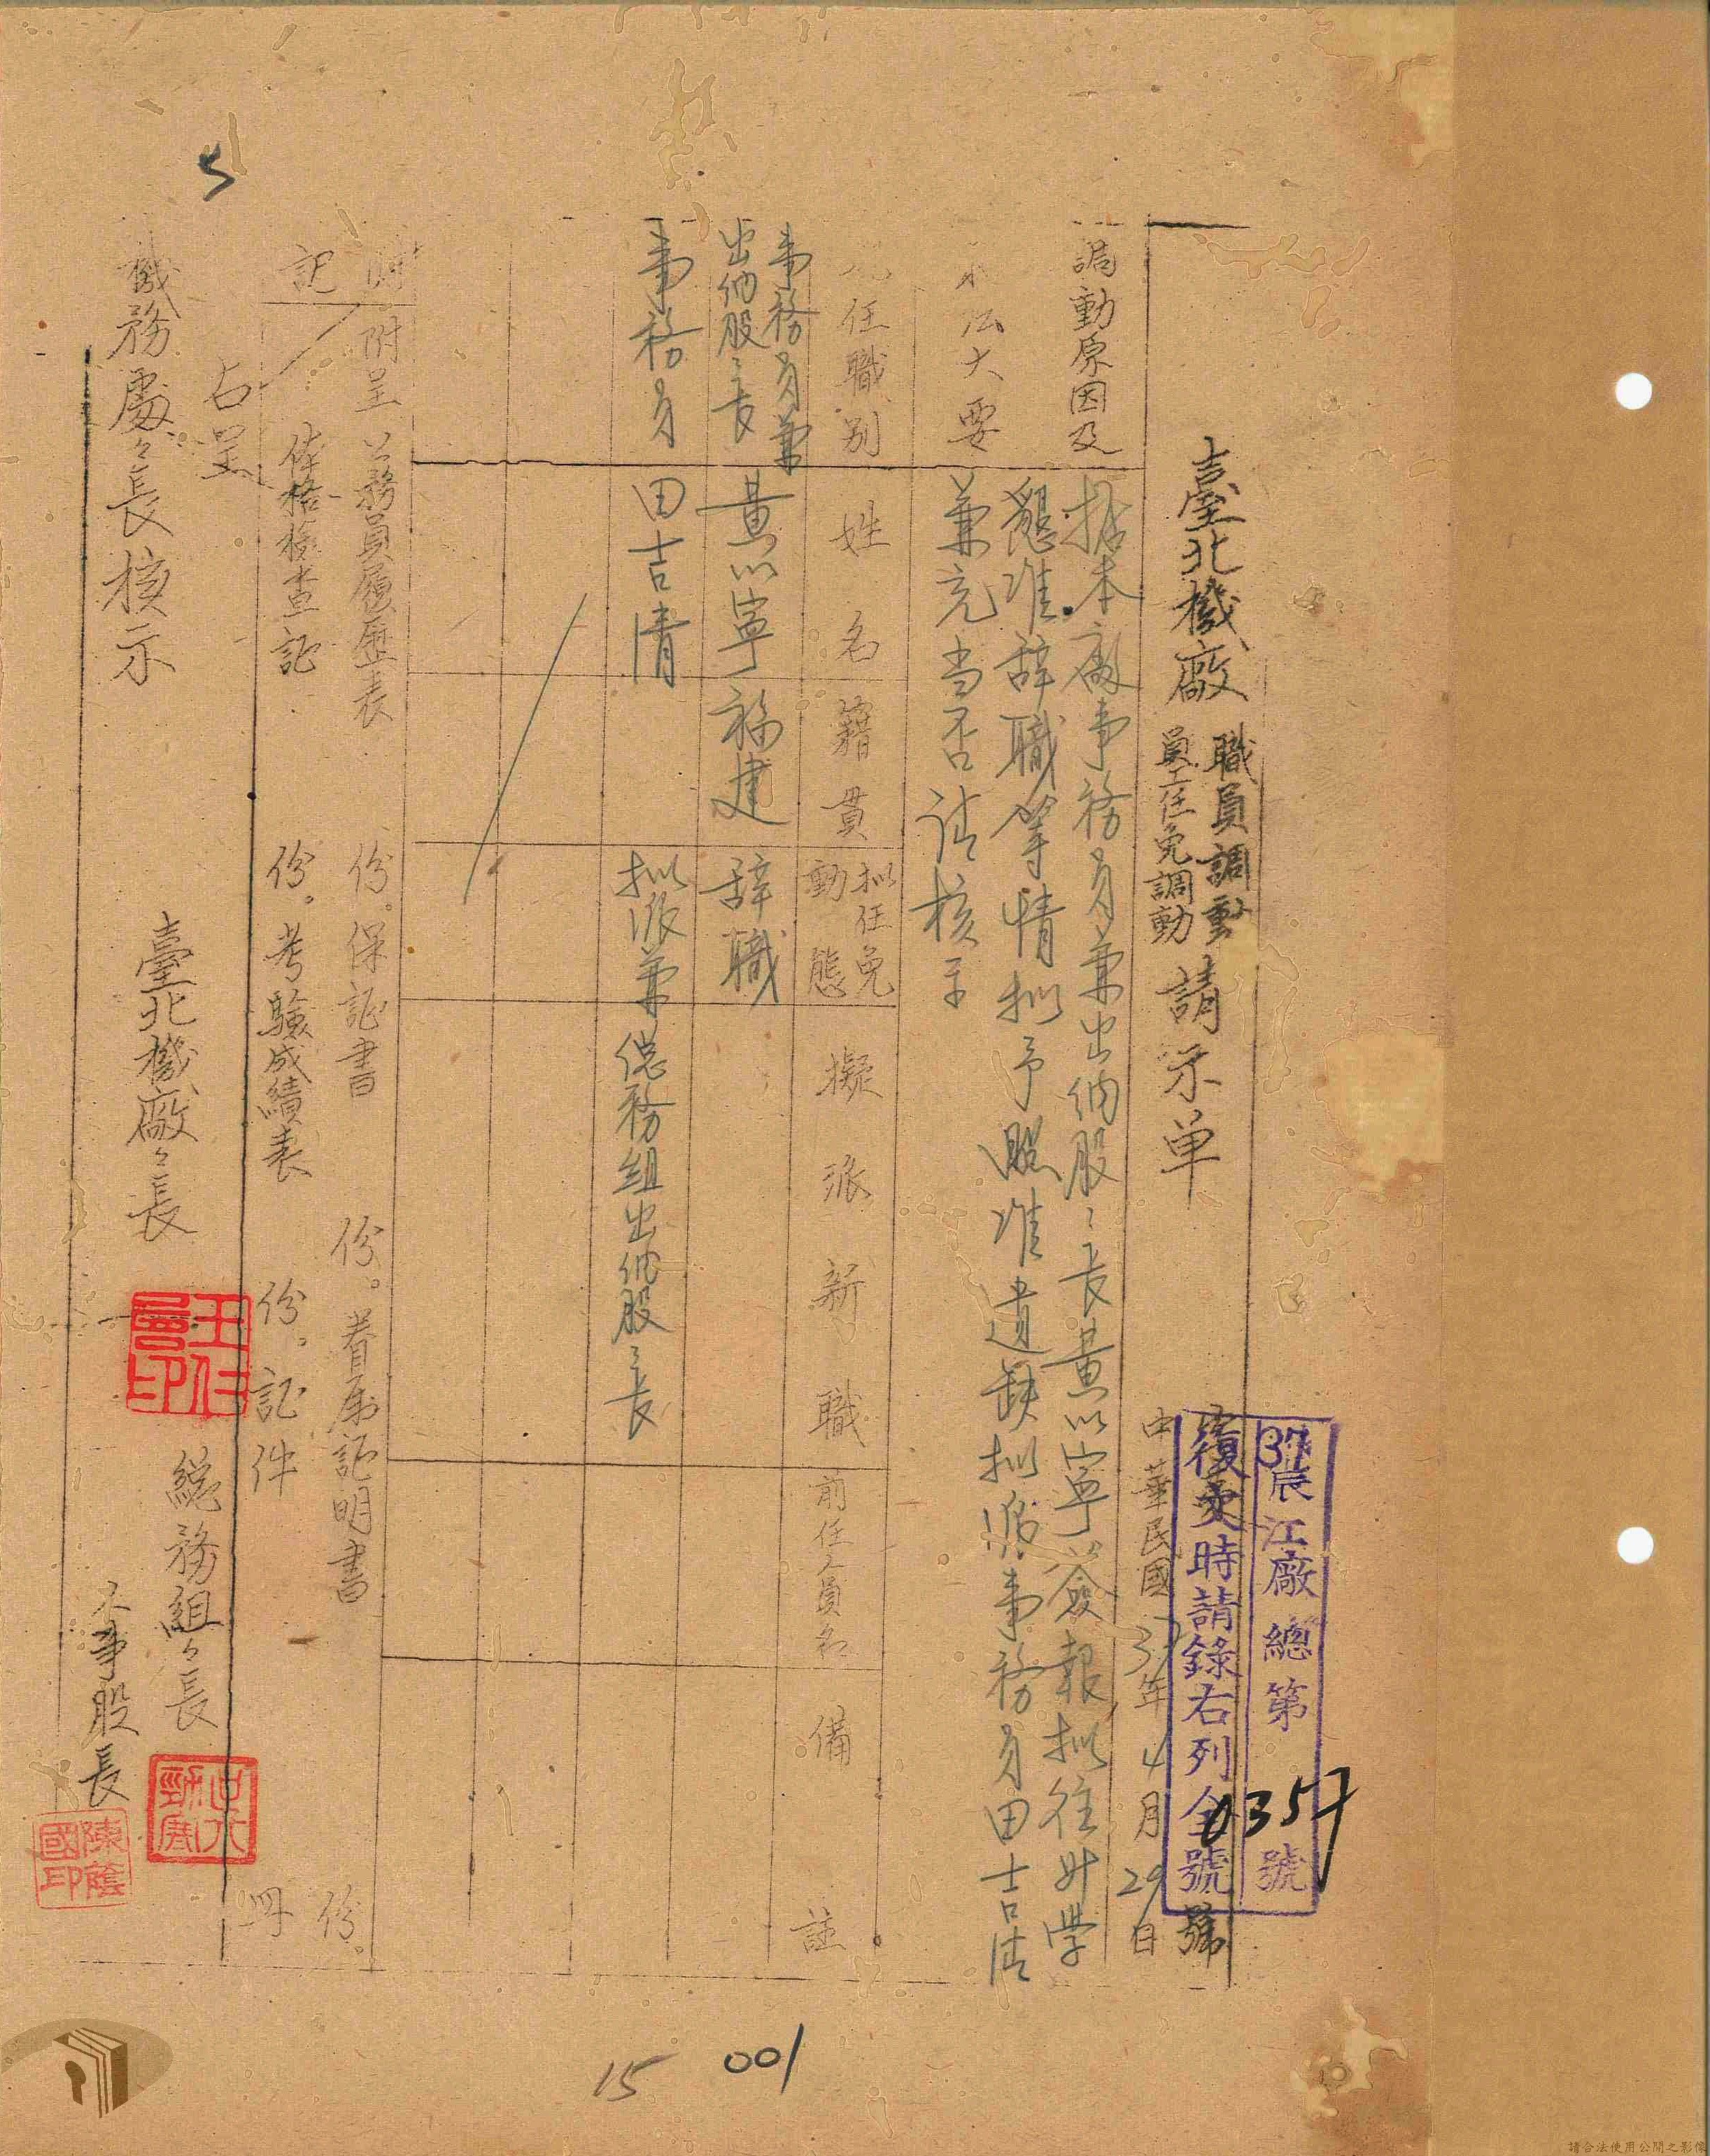 37辰江廠總第0357號
復文時請錄右列全號
臺北機廠 職員調動 請示单
員工任免調動
中華民國37年4月29日
號
調動原因及
办法大要
據本廠事務員兼出纳股々長黃以寧簽報拟往升学
懇准辞職等情拟予照准遺缺拟派事務員田吉清
兼充当否请核示
現任職别
姓名
籍貫
拟任免
動態
擬派新職
前任人員名
備註
事務員兼
出纳股々長
黃以寧
福建
辞職
事務員
田吉清
拟派兼
总務組出纳股々長
附記
附呈 公務員履歷表 份。保証書 份。眷属証明書 份。
体格檢查証 份。考驗成績表 份。証件
右呈
機務處々長核示
臺北機廠々長
王仁曾印
総務組々長
人事股長
陳蔭國印
5
15
001
請合法使用公開之影像